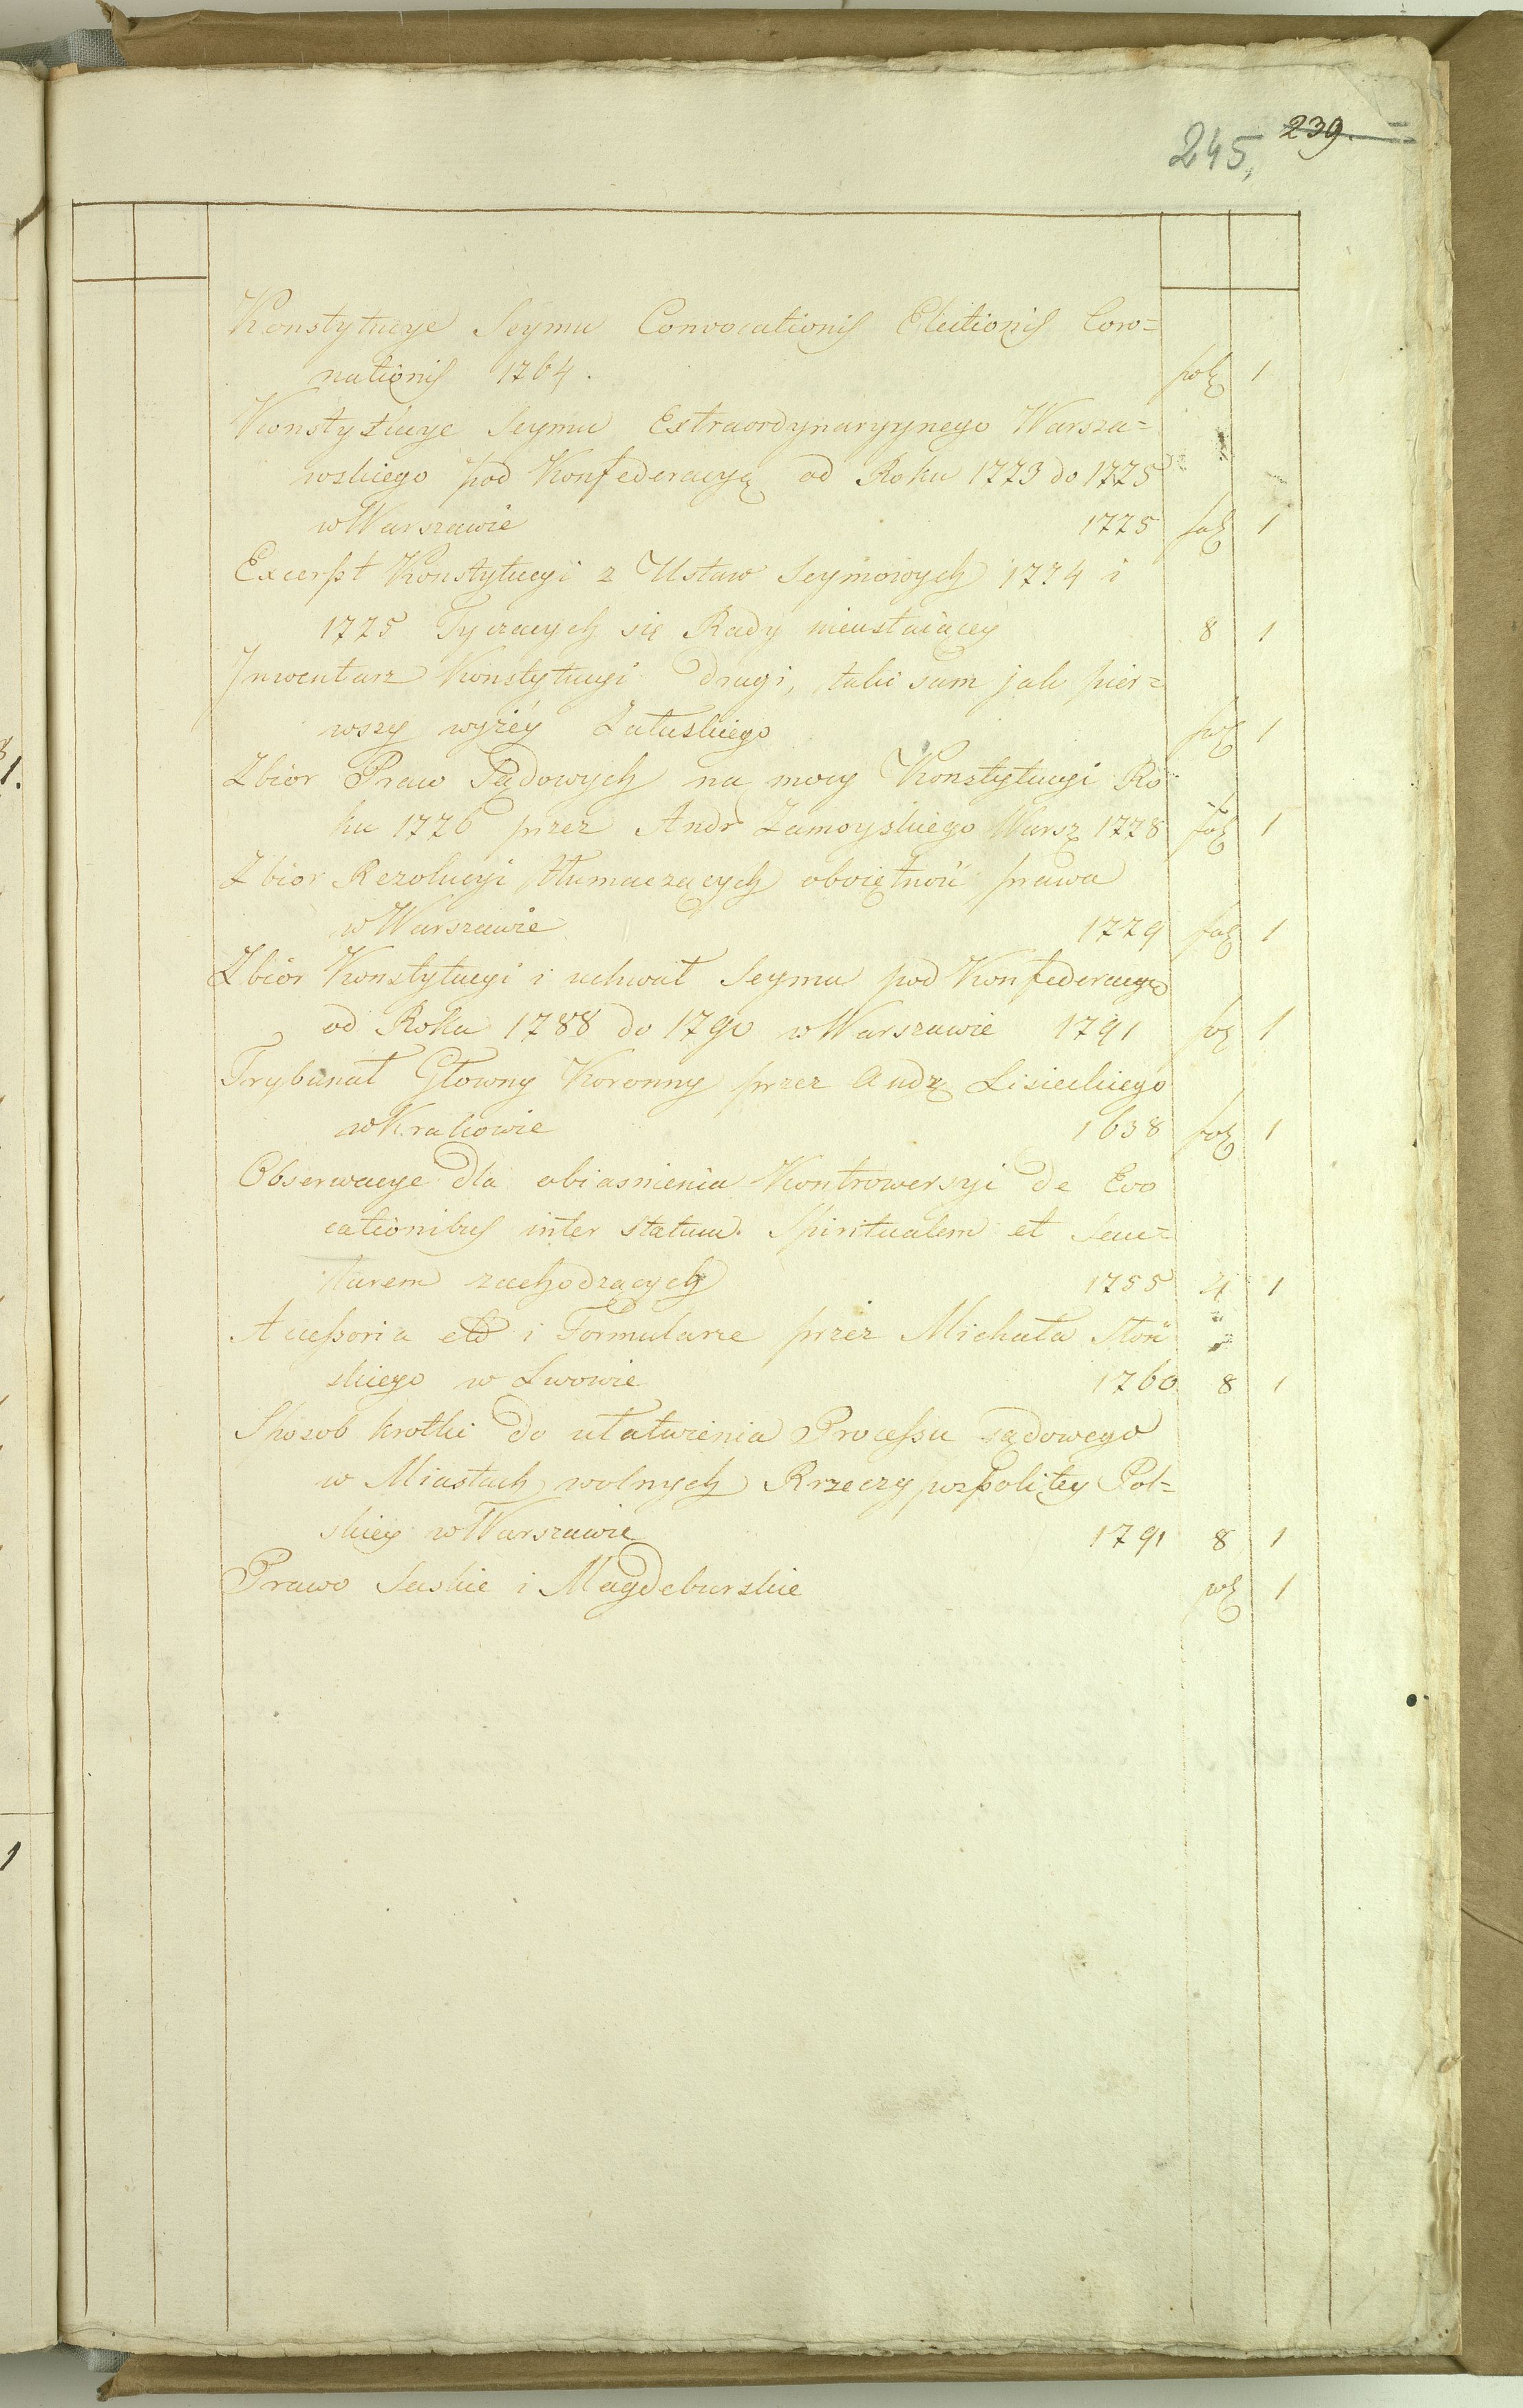 245, 239.
Konstytucye Seymu Convocationis Electionis Coro=
nationis 1764. fol 1
Konstytucye Seymu Extraordynaryynego Warsza=
wskiego pod Konfederacyą od Roku 1773 do 1775
w Warszawie 1775 fol 1
Excerpt Konstytucyi z Ustaw Seymowych 1774 i
1775 Tyczących się Rady nieustaiącey 8 1
Inwentarz Konstytucyi drugi, taki sam jak pier=
wszy wyżey Załuskiego fol 1
Zbior Praw Sądowych na mocy Konstytucyi Ro
ku 1776 przez Andr Zamoyskiego Warsz 1778 fol 1
Zbior Rezolucyi tłumaczących oboiętność prawa
w Warszawie 1779 fol 1
Zbiór Konstytucyi i uchwał Seymu pod Konfederacyą
od Roku 1788 do 1790 w Warszawie 1791 fol 1
Trybunał Głowny Koronny przez Andz Lisieckiego
w Krakowie 1638 fol 1
Obserwacye dla obiasnienia Kontrowersyi de Evo
cationibus inter Statum Spiritualem et Secu=
larem zachodzących 1755 4 1
Accessoria etc i Formularze przez Michała Słoń
skiego w Lwowie 1760 8 1
Sposob krotki do ułatwienia Processu sądowego
w Miastach wolnych Rzeczypospolitey Pol=
skiey w Warszawie 1791 8 1
Prawo Saskie i Magdeburskie fol 1